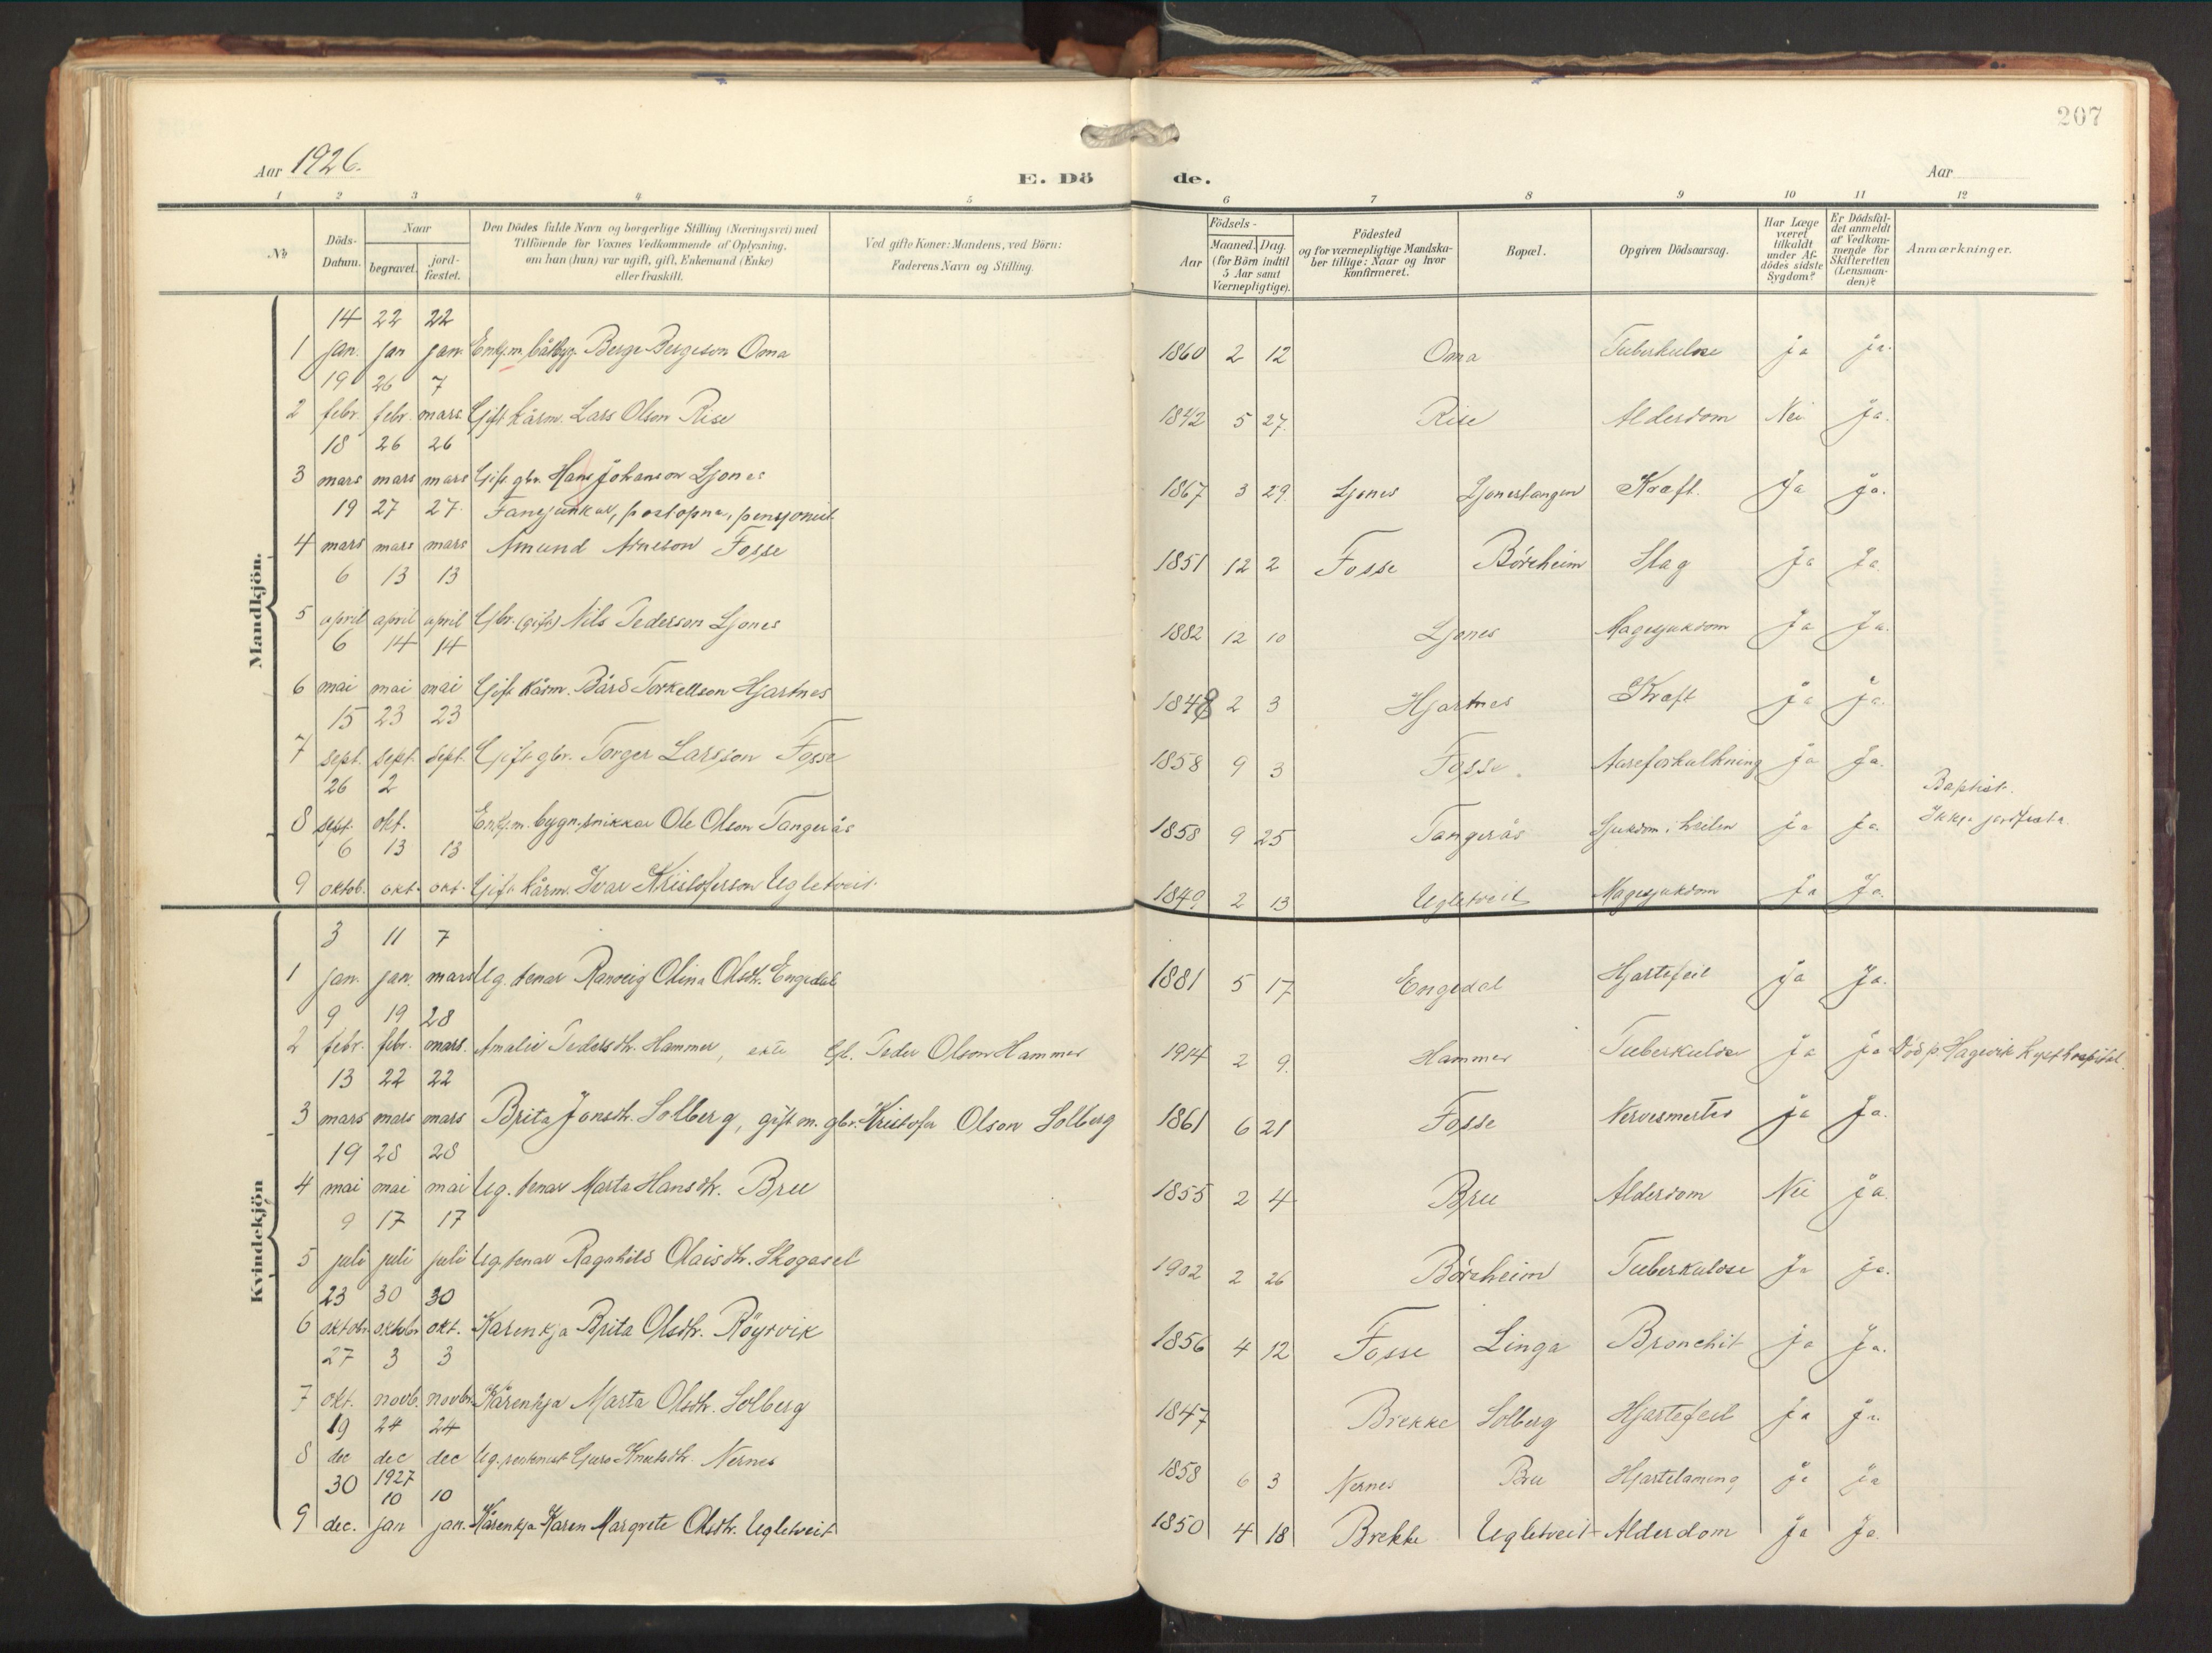 207
Aar 1926.
E. Dö de.
Aar
1 2 3 4 5 6 7 8 9 10 11 12
No
Döds-Datum.
Naar
begravet.
jord-fæstet.
Den Dödes fulde Navn og borgerlige Stilling (Næringsvei) med
Tilföiende for Voxnes Vedkommende af Oplysning,
om han (hun) var ugift, gift, Enkemand (Enke)
eller fraskilt.
Ved gifte Koner: Mandens, ved Börn:
Faderens Navn og Stilling.
Födsels-
Aar
Maaned. Dag.
(for Börn indtil
5 Aar samt
Værnepligtige).
Födested
og for værnepligtige Mandska-
ber tillige: Naar og hvor
konfirmeret.
Bopæl.
Opgiven Dödsaarsag.
Har Læge
været
tilkaldt
under Af-
dödes sidste
Sygdom?
Er Dödsfal-
det anmeldt
af Vedkom-
mende for
Skifteretten
(Lensman-
den)?
Anmærkninger.
Mandkjön.
14 22 22
1 jan. jan jan. Enkjm. båtbygg. Berge Bergeson Oma 1860 2 12 Oma Tuberkulose ja ja.
19 26 7
2 febr. febr. mars. Gift kårm. Lars Olson Rise 1842 5 27. Rise Alderdom Nei Ja.
18 26 26
3 mars mars mars Gift gbr. Hans Johanson Ljones 1867 3 29. Ljones Ljonestangen Kræft. Ja ja.
19 27 27. Fanejunkar, postopna, pensjonist
4 mars mars mars Amund Arneson Fosse 1851 12 2 Fosse Börsheim Slag Ja Ja.
6 13 13
5 april april april Gbr. (gift) Nils Pederson Ljones 1882 12 10 Ljones Magesjukdom Ja Ja.
6 14 14
6 mai mai mai Gift kårm. Bård Torkellson Hjartnes 1848 2 3 Hjartnes Kræft ja Ja.
15 23 23
7 sept. sept. sept. Gift gbr. Torger Larsson Fosse 1858 9 3 Fosse. Aareforkalkning ja Ja.
26 2
8 sept. okt. Enkjm. bygn.snikkar Ole Olson Tangerås 1858 9 25 Tangerås Sjukdom i heilen ja Ja. Baptist. Ikkje jordfesta.
6 13 13
9 oktob. okt. okt. Gift kårm. Ivar Kristoferson Ugletveit. 1849 2 13 Ugletveit Magesjukdom Ja Ja.
Kvindekjön
3 11 7
1 jan. jan. mars Ug. tenar Ranveig Olina Olsdtr. Engedal 1881 5 17 Engedal Hjartefeil Ja Ja.
9 19 28
2 febr. febr. mars. Amalie Pedersdtr. Hammer, ekte Gf. Peder Olson Hammer 1914 2 9. Hammer Tuberkulose Ja ja Död p. Hagevik Kysthospital.
13 22 22
3 mars mars mars Brita Jonsdtr. Solberg, gift m. gbr. Kristofer Olson Solberg 1861 6 21 Fosse Nervesmerter Ja Ja.
19 28 28
4 mai mai mai Ug. tenar Marta Hansdtr. Bru 1855 2 4 Bru Alderdom Nei Ja.
9 17 17
5 juli juli juli Ug. tenar Ragnhild Olaisdtr. Skogasel 1902 2 26 Börsheim Tuberkulose Ja ja.
23 30 30
6 oktobr. oktobr okt. Kårenkja Brita Olsdtr. Röyrvik 1856 4 12 Fosse Linga Bronchit ja Ja.
27 3 3
7 okt. novb. novbr. Kårenkja Marta Olsdtr. Solberg 1847 Brekke Solberg Hjartefeil Ja ja.
19 24 24
8 dec dec dec Ug. Guro Knutsdtr. Nernes 1858 6 3 Nernes Bru Hjartelaming ja ja
30 1927
10 10
9 dec. jan jan. Kårenkja Karen Margrete Olsdtr. Ugletveit 1850 4 18 Brekke Ugletveit Alderdom Ja Ja.